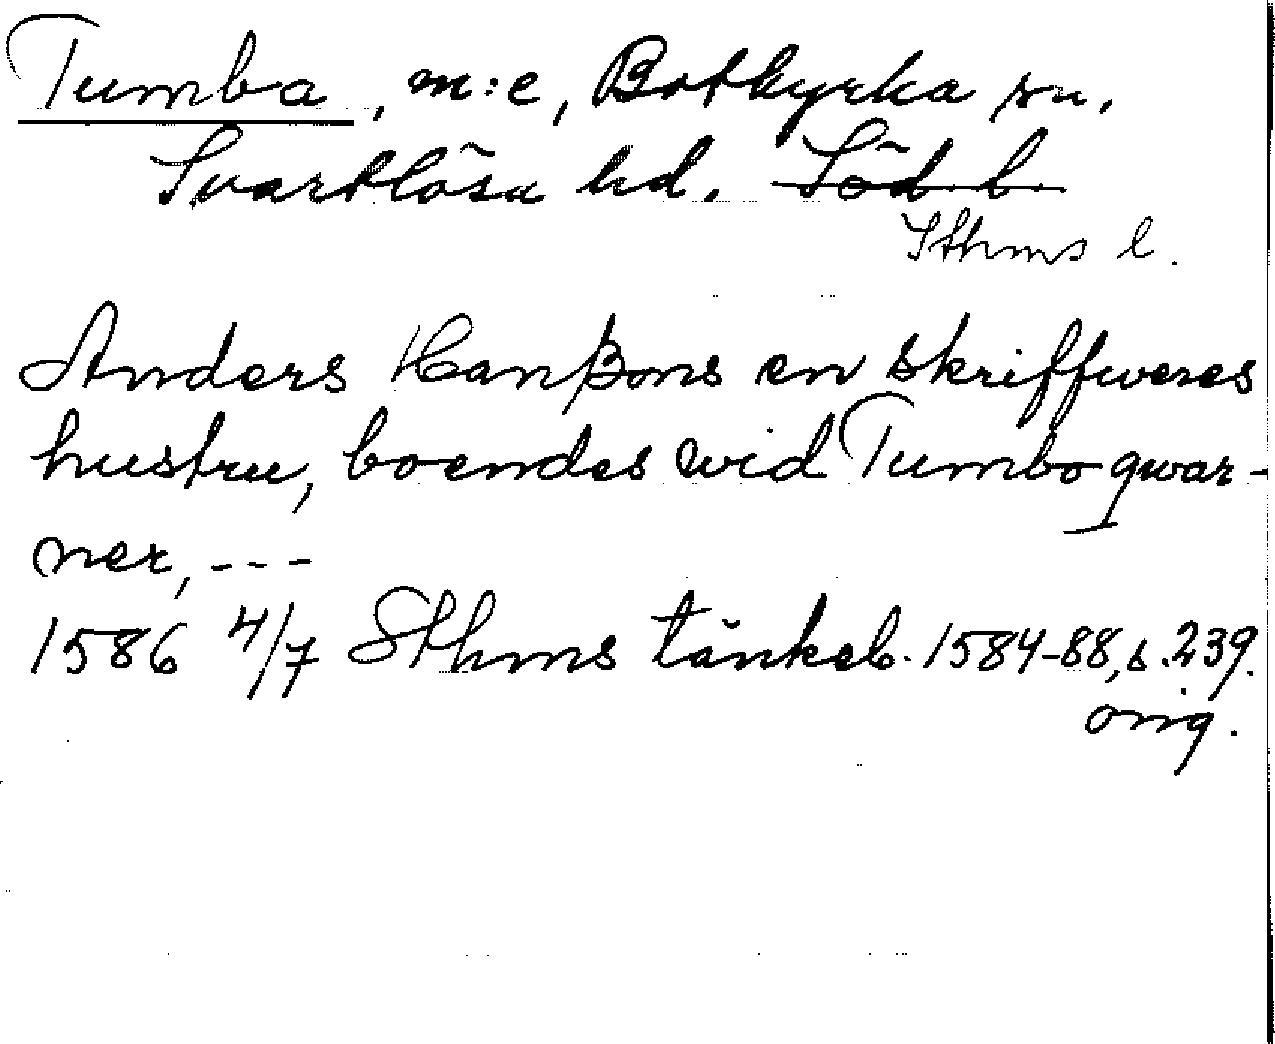 Tumba, m:e, Botkyrka sn.
Svartlösa hd. Söd. l.
Sthms l.
Anders Hanßons en skriffweres
hustru, boendes wid Tumbo qwar-
ner, ---
1586 4/7 Sthms tänkeb. 1584-88, s. 239.
orig.